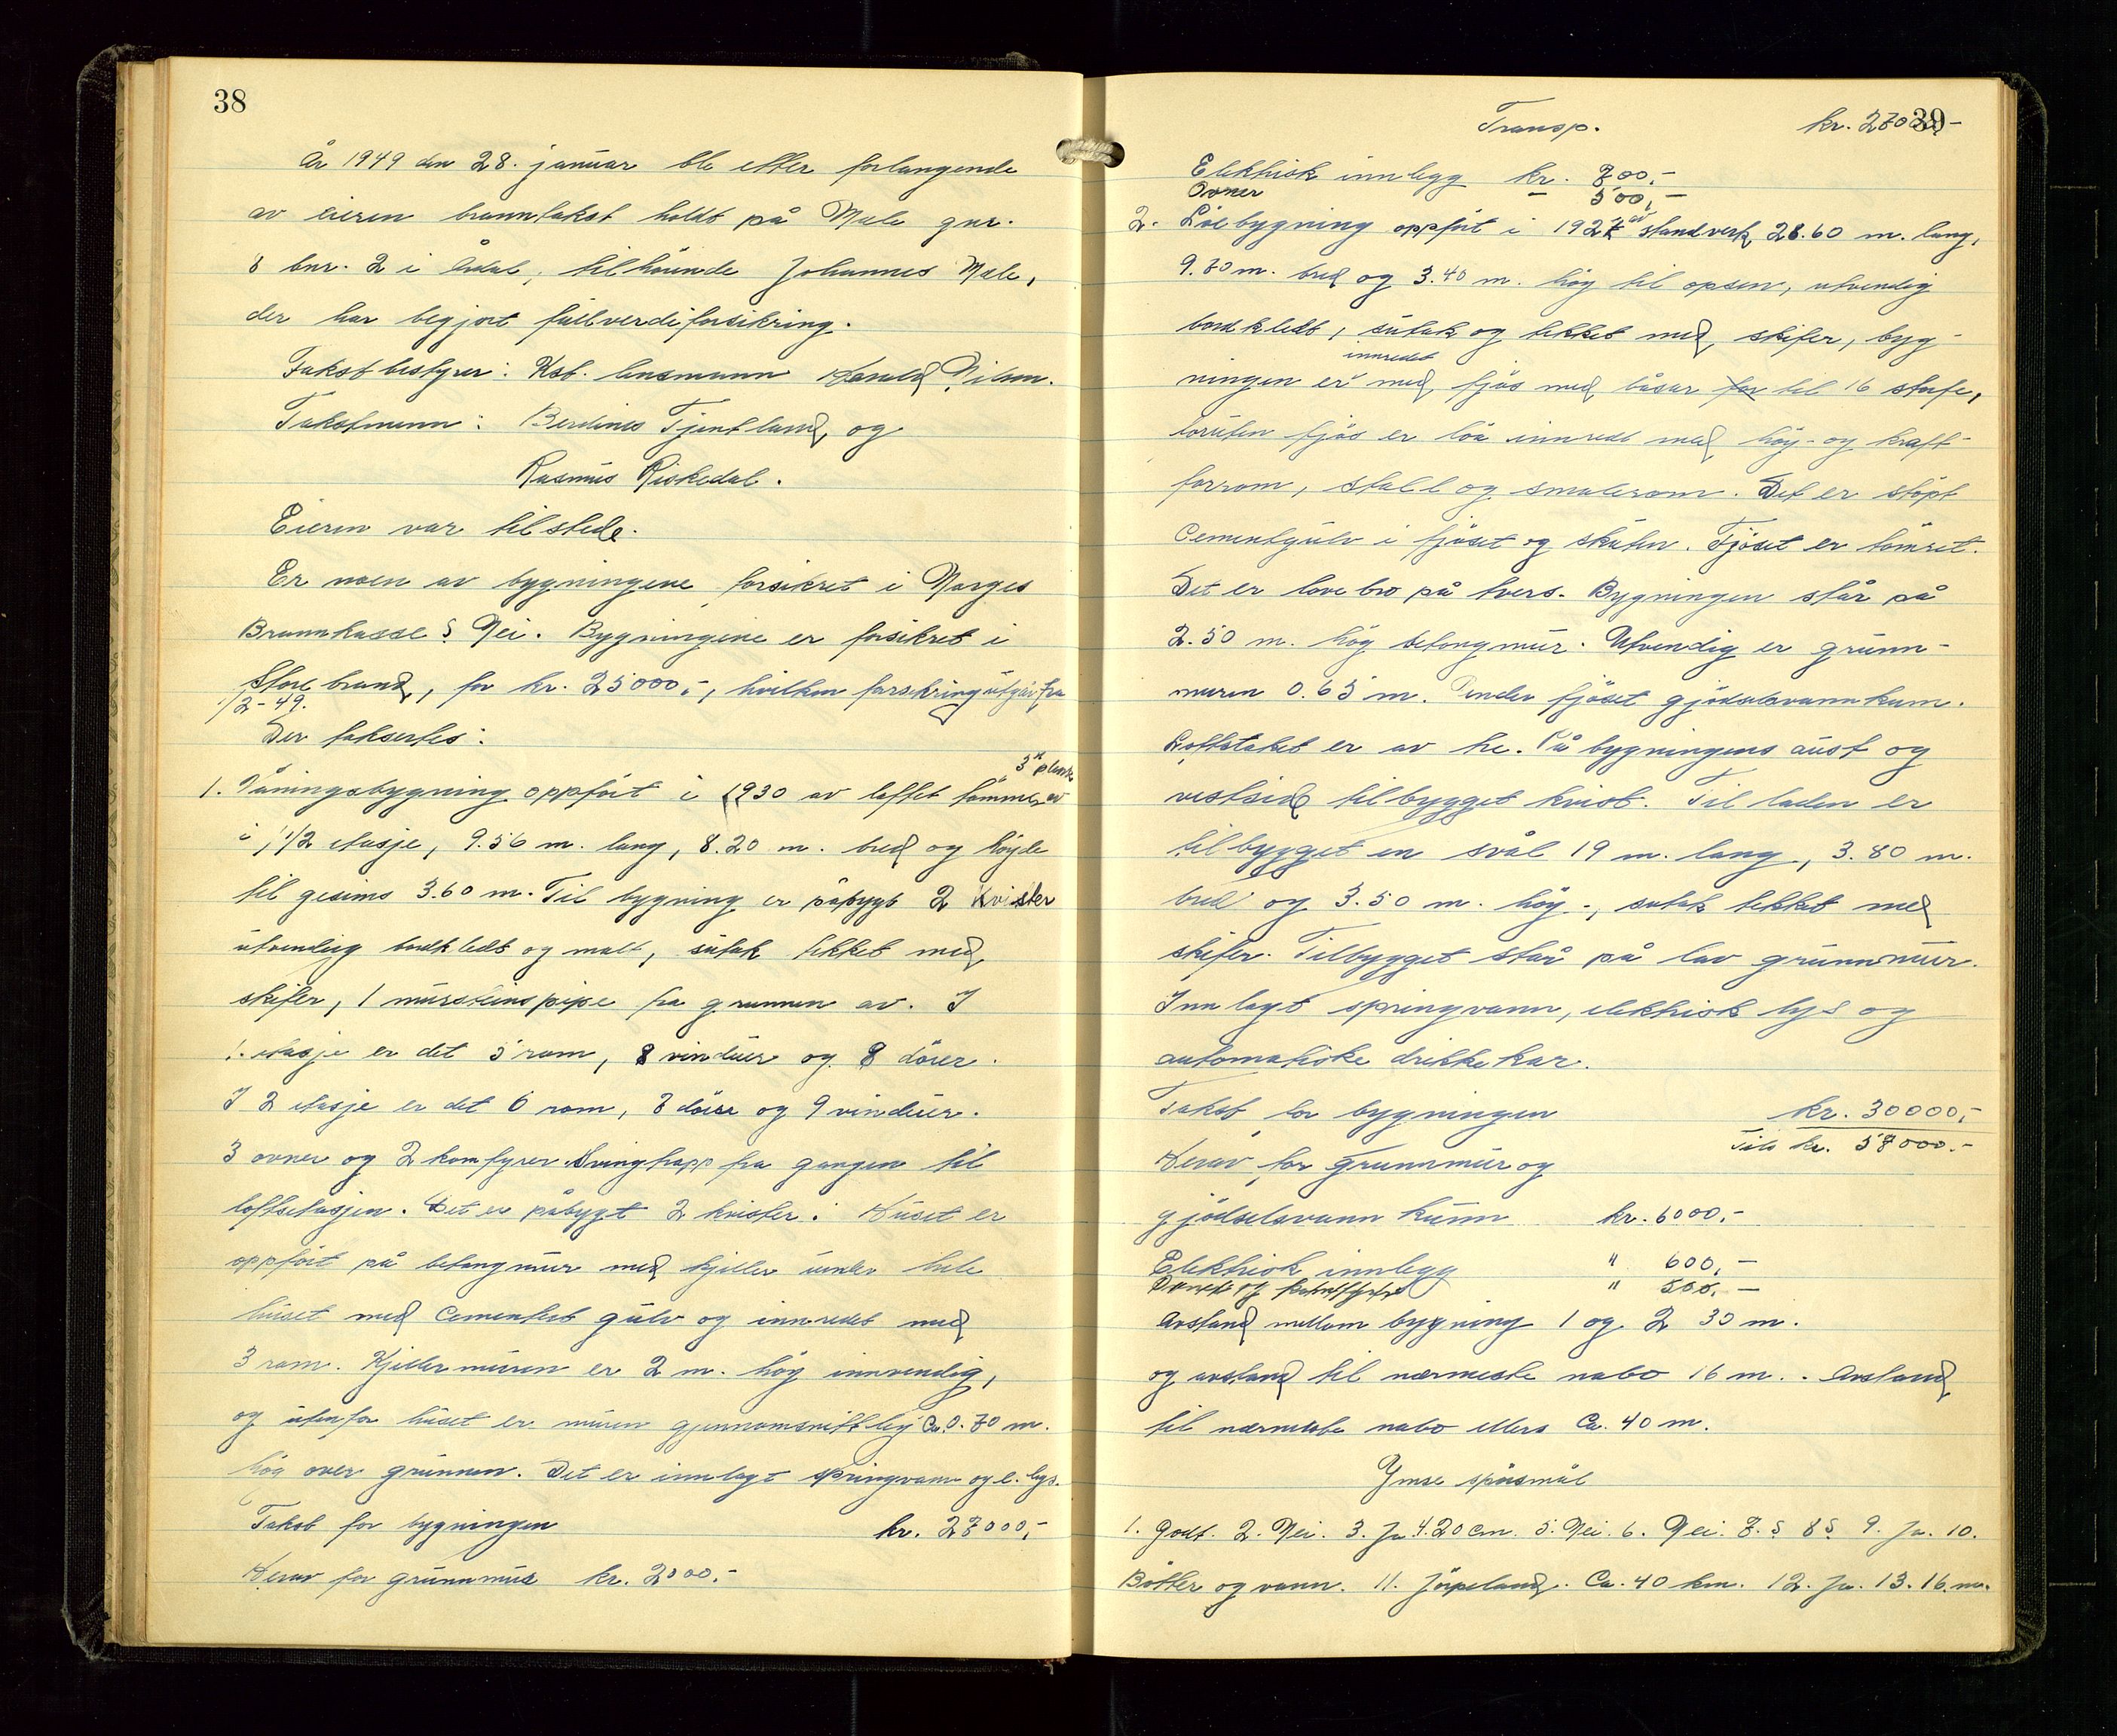 38
År 1949 den 28. januar ble etter forlangende
av eieren branntakst holdt på Mæle gnr.
8 bnr. 2 i Årdal, tilhørende Johannes Mæle,
der har begjørt fullverdiforsikring.
Takstbestyrer: Kst. lensmann Harald Nilsen.
Takstmenn: Berdines Tjentland, og
Rasmus Riskedal.
Eieren var tilstede.
Er noen av bygningene forsikret i Norges
Brannkasse? Nei. Bygningene er forsikret i
Storebrand, for kr. 25000,-, hvilken forsikring utgår fra
1/2-49.
Der taksertes:
3" plank
1. Våningsbygning oppført i 1930 av laftet tømmer av
i 1 1/2 etasje, 9.56 m. lang, 8.20 m. bred og høyde
til gesims 3.60 m. Til bygning er påbygt 2 kvister
utvendig bordkledt og malt, sutak tekket med
skifer, 1 mursteinspipe fra grunnen av. I
1. etasje er det 5 rom, 8 vinduer og 8 dører.
I 2 etasje er det 6 rom, 8 dører og 9 vinduer.
3 ovner og 2 komfyrer. Svingtrapp fra gangen til
loftsetasjen. Det er påbygt 2 kvister. Huset er
oppført på betongmur med kjeller under hele
huset med Cementert gulv og innredet med
3 rom. Kjellermuren er 2 m. høg innvendig,
og utenfor huset er muren gjennomsnittlig Ca. 0.70 m.
høg over grunnen. Det er innlagt springvann og e. lys.
Takst for bygningen kr. 27000,-
Herav for grunnmur kr. 2000.-
39
Transp. kr. 27000,-
Elektrisk innlegg kr. 700,-
Ovner - 500,-
2. Løebygning oppført i 1927 av standverk, 28.60 m. lang,
9.70 m. bred og 3.40 m. høg til opsen, utvendig
bordkledt, sutak og tekket med skifer, byg-
innredet
ningen er med fjøs med båser for til 16 storfe,
foruten fjøs er løa innredt med høy- og kraft-
forrom, stall og smalerom. Det er støpt
Cementgulv i fjøset og skuten. Fjøset er tømret.
Det er lovebro på tvers. Bygningen står på
2.50 m. høg betongmur. Utvendig er grunn-
muren 0.65 m. Under fjøset gjødselsvannkum.
Loftstaket er av tre. På bygningens aust og
vestside tilbygget kvist. Til laden er
tilbygget en sval 19 m. lang, 3.80 m.
bred og 3.50 m. høg-, sutak tekket med
skifer. Tilbygget står på lav grunnmur.
Innlagt springvann, elektrisk lys og
automatiske drikkekar.
Takst for bygningen kr. 30000,-
Tils kr. 57000.-
Herav for grunnmur og
gjødselsvann kumm kr. 6000,-
Elektrisk innlegg " 600,-
" 500,-
Avstand mellom bygning 1 og 2 30 m.
og avstand til nærmeste nabo 16 m. . Avstand
til nærmeste nabo ellers Ca. 40 m.
Ymse spørsmål
1. Godt. 2. Nei. 3. Ja 4. 20 cm. 5. Nei. 6. Nei. 7. ? 8 ? 9. Ja. 10.
Bøtter og vann. 11. Jørpeland. Ca. 40 km. 12. Ja. 13. 16. m.